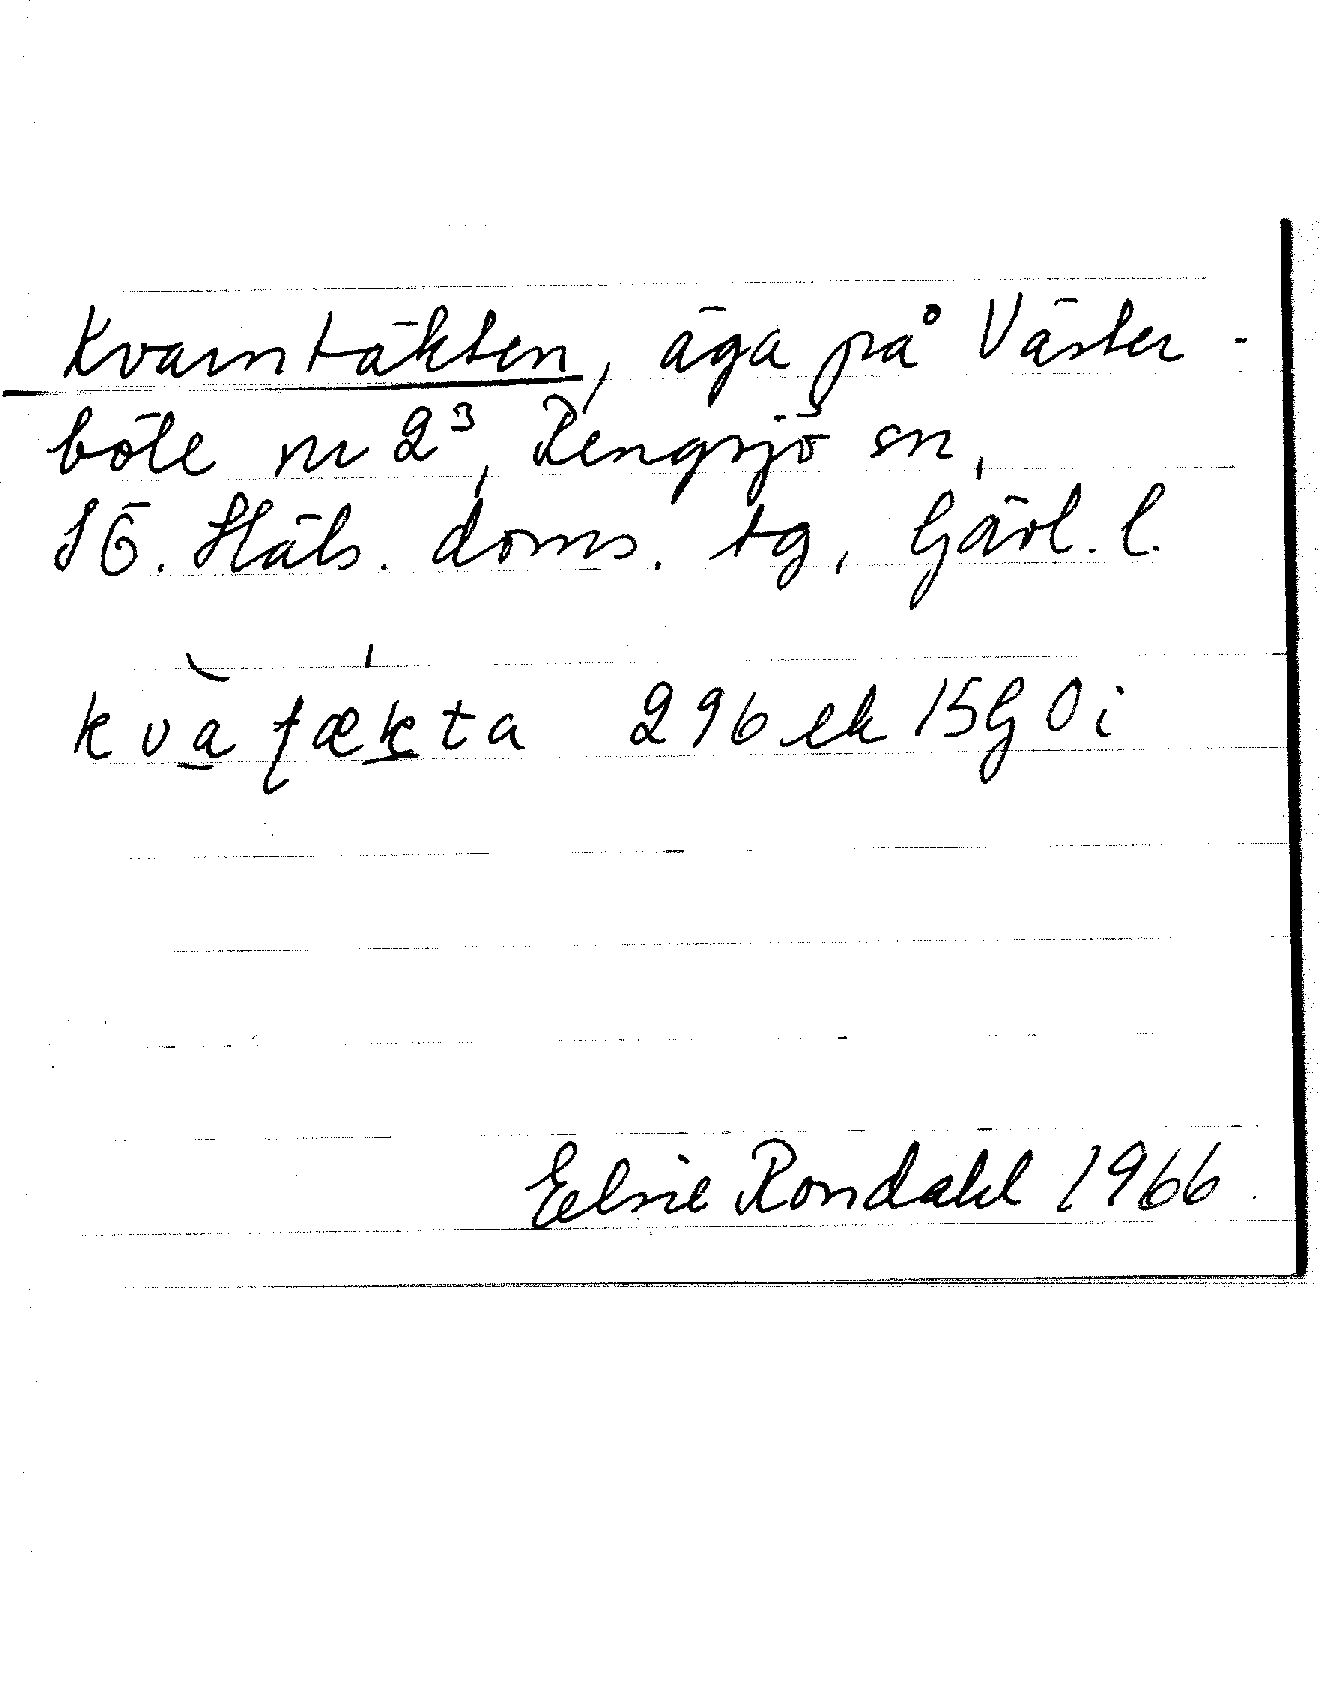 Kvarntäkten, äga på Väster-
böle nr 2³, Rengsjö sn,
SÖ. Häls. doms. tg, Gävl. l.
kvà ƭækta 296 ek 15G Oi
Eelsie Rondahl 1966.